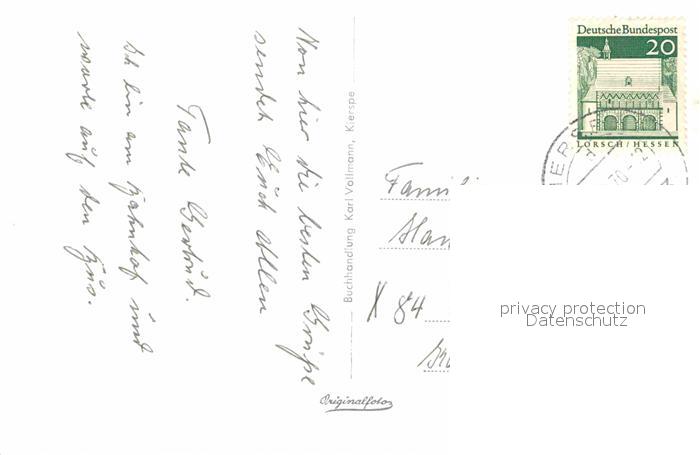 Von hier die besten Grüße
sendet Euch Allen
Tante Gertrud.
Ich bin am Bahnhof und
warte auf den Bus.
Buchhandlung Karl Vollmann, Kierspe
Originalfoto
Deutsche Bundespost
20
LORSCH/HESSEN
Famili
X 84
privacy protection
Datenschutz